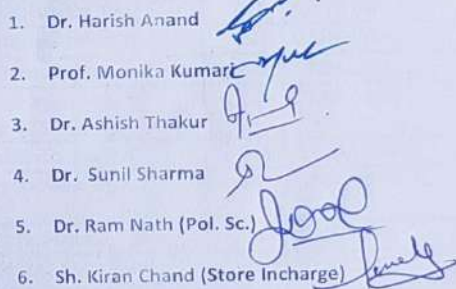 1. Dr. Harish Anand
2. Prof. Monika Kumari
3. Dr. Ashish Thakur
4. Dr. Sunil Sharma
5. Dr. Ram Nath (Pol. Sc.)
6. Sh. Kiran Chand (Store Incharge)